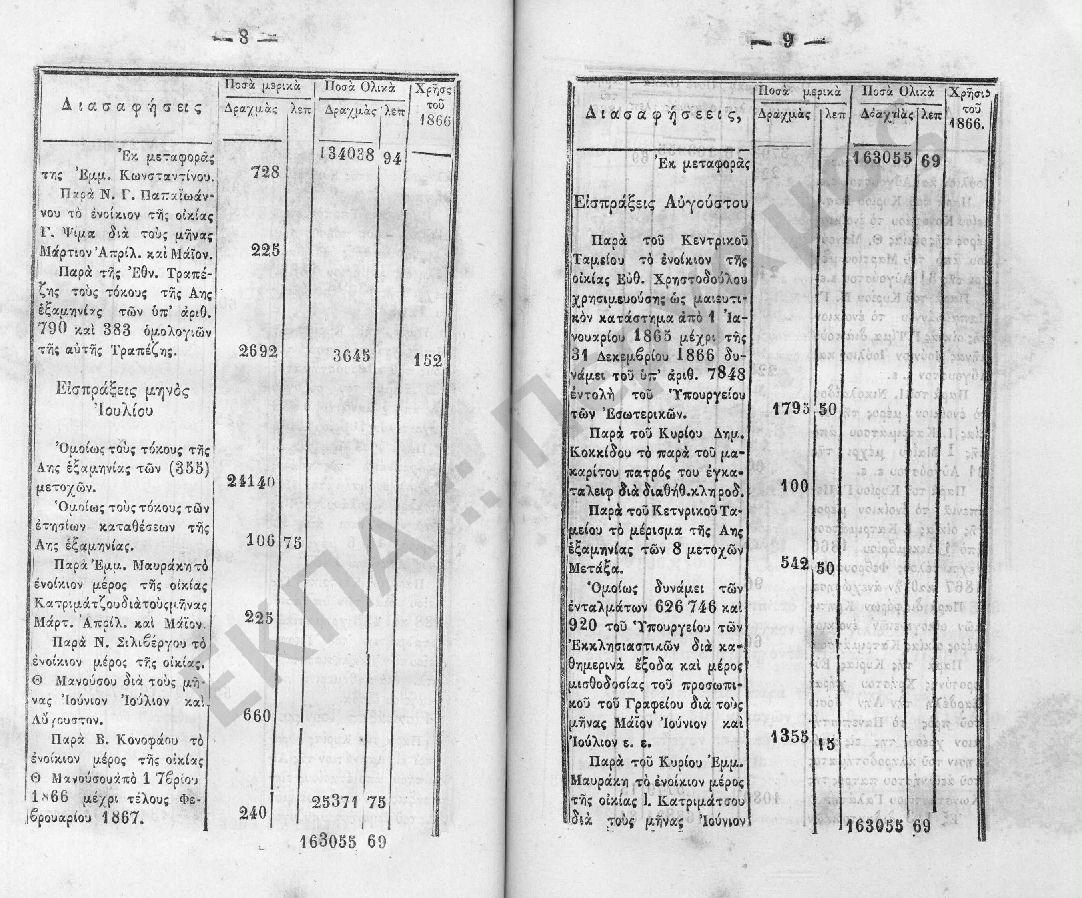 — 8 —
Διασαφήσεις Ποσὰ μερικὰ Ποσὰ Ολικὰ Χρῆσς
Δραχμὰς λεπ Δραχμὰς λεπ τοῦ
1866
Ἐκ μεταφορᾶς 134038 94
της Ἐμμ. Κωνσταντίνου. 728
Παρὰ Ν. Γ. Παπαϊωάν-
νου τὸ ἐνοίκιον τῆς οἰκίας
Γ. Ψιμα διὰ τοὺς μῆνας
Μάρτιον Ἀπρίλ. καὶ Μάϊον. 225
Παρὰ τῆς Ἐθν. Τραπέ-
ζης τοὺς τόκους τῆς Αης
ἑξαμηνίας τῶν ὑπ' ἀριθ.
790 καὶ 383 ὁμολογιῶν
τῆς αὐτῆς Τραπέζης. 2692 3645 152
Εἰσπράξεις μηνὸς
Ἰουλίου
Ὁμοίως τοὺς τόκους τῆς
Αης ἑξαμηνίας τῶν (355)
μετοχῶν. 24140
Ὁμοίως τοὺς τόκους τῶν
ἐτησίων καταθέσεων τῆς
Αης ἑξαμηνίας. 106 75
Παρὰ Ἐμμ. Μαυράκη τὸ
ἐνοίκιον μέρος τῆς οἰκίας
Κατριμάτζου διὰ τοὺς μῆνας
Μάρτ. Ἀπρίλ. καὶ Μάϊον. 225
Παρὰ Ν. Σιλιβέργου τὸ
ἐνοίκιον μέρος τῆς οἰκίας.
Θ Μανούσου διὰ τοὺς μῆ-
νας Ἰούνιον Ἰούλιον καὶ
Αὔγουστον. 660
Παρὰ Β. Κονοφάου τὸ
ἐνοίκιον μέρος τῆς οἰκίας
Θ Μανούσου ἀπὸ 1 7βρίου
1866 μέχρι τέλους Φε- 25371 75
βρουαρίου 1867. 240
163055 69
— 9 —
Διασαφήσεεις, Ποσὰ μερικὰ Ποσὰ Ολικὰ Χρῆσις
Δραχμὰς λεπ Δραχμὰς λεπ τοῦ
1866.
Ἐκ μεταφορᾶς 163055 69
Εἰσπράξεις Αὐγούστου
Παρὰ τοῦ Κεντρικοῦ
Ταμείου τὸ ἐνοίκιον τῆς
οἰκίας Εὐθ. Χρηστοδούλου
χρησιμευούσης ὡς μαιευτι-
κὸν κατάστημα ἀπὸ 1 Ἰα-
νουαρίου 1865 μέχρι τῆς
31 Δεκεμβρίου 1866 δυ-
νάμει τοῦ ὑπ' ἀριθ. 7848
ἐντολὴ τοῦ Ὑπουργείου
τῶν Ἐσωτερικῶν. 1795 50
Παρὰ τοῦ Κυρίου Δημ.
Κοκκίδου τὸ παρὰ τοῦ μα-
καρίτου πατρός του ἐγκα-
ταλειφ διὰ διαθήθ. κληροδ. 100
Παρὰ τοῦ Κετνρικοῦ Τα-
μείου τὸ μέρισμα τῆς Αης
ἑξαμηνίας τῶν 8 μετοχῶν
Μετάξα. 542 50
Ὁμοίως δυνάμει τῶν
ἐνταλμάτων 626 746 καὶ
920 τοῦ Ὑπουργείου τῶν
Ἐκκλησιαστικῶν διὰ κα-
θημερινὰ ἔξοδα καὶ μέρος
μισθοδοσίας τοῦ προσωπι-
κοῦ τοῦ Γραφείου διὰ τοὺς
μῆνας Μάϊον Ἰούνιον καὶ
Ἰούλιον ε. ε. 1355 15
Παρὰ τοῦ Κυρίου Ἐμμ.
Μαυράκη τὸ ἐνοίκιον μέρος
τῆς οἰκίας Ι. Κατριμάτσου
διὰ τοὺς μῆνας Ἰούνιον 163055 69